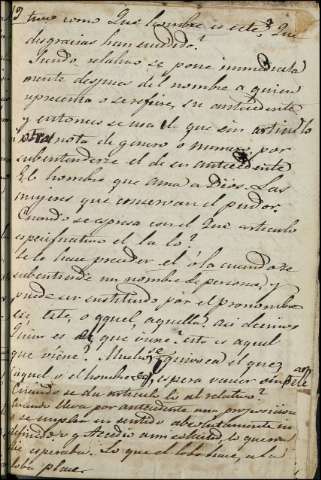 tivo como Qué hombre es este? Qué
desgracias han sucedido?
Siendo relativo se pone inmediata
mente despues del nombre a quien
representa o se refiere, su antecedente
y entonces se usa el que sin articulo
nota de genero o numero por
subentenderse el de su antecedente
El hombre que ama a Dios. Las
mujeres que conservan el pudor.
Cuando se espresa con el Que articulo
especificativo el la lo?
Se le hace preceder el o la cuando se
subentiende un nombre de persona, y
puede ser sustituido por el pronombre
ese, este, o aquel, aquella: asi decimos
Quien es el que viene? este es aquel
que viene?
aquel, o el hombre espera
Cuando se da articulo lo al relativo?
Cuando lleva por antecedente una proposicion
o se emplea en sentido absolutamente in
definido
lo esperaba. Lo que el lobo hace, a la
loba place.